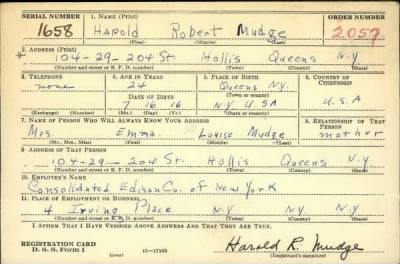 SERIAL NUMBER 1. NAME (Print) ORDER NUMBER
1658 Harold Robert Mudge 2057
(First) (Middle) (Last)
2. ADDRESS (Print)
104-29-204 St. Hollis Queens N.Y.
(Number and street or R. F. D. number) (Town) (County) (State)
3. TELEPHONE 4. AGE IN YEARS 5. PLACE OF BIRTH 6. COUNTRY OF CITIZENSHIP
none 24 Queens N.Y.
(Town or county)
DATE OF BIRTH
7 16 16 N.Y. U.S.A U.S.A
(Exchange) (Number) (Mo.) (Day) (Yr.) (State or country)
7. NAME OF PERSON WHO WILL ALWAYS KNOW YOUR ADDRESS 8. RELATIONSHIP OF THAT PERSON
Mrs. Emma Louise Mudge mother
(Mr., Mrs., Miss) (First) (Middle) (Last)
9. ADDRESS OF THAT PERSON
104-29-204 St. Hollis Queens N.Y
(Number and street or R. F. D. number) (Town) (County) (State)
10. EMPLOYER'S NAME
Consolidated Edison Co. of New York
11. PLACE OF EMPLOYMENT OR BUSINESS
4 Irving Place N.Y N.Y N.Y.
(Number and street or R. F. D. number) (Town) (County) (State)
I AFFIRM THAT I HAVE VERIFIED ABOVE ANSWERS AND THAT THEY ARE TRUE.
REGISTRATION CARD
D. S. S. Form 1 Harold R. Mudge
(Registrant's signature)